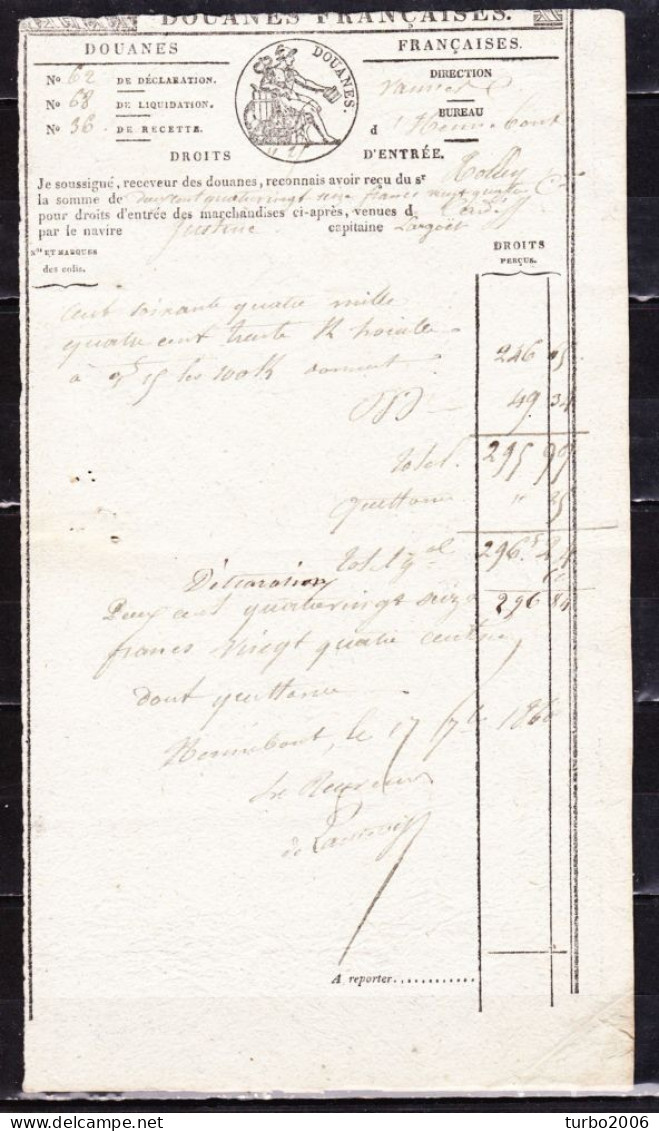 DOUANES FRANÇAISES.
DOUANES FRANÇAISES.
DOUANES.
No 62 DE DÉCLARATION.
No 68 DE LIQUIDATION.
No 36 DE RECETTE.
DIRECTION
Vannes
BUREAU
d'Hennebont
DROITS D'ENTRÉE.
Je soussigné, receveur des douanes, reconnais avoir reçu du sr
la somme de deux cent quatre vingt seize francs vingt quatre c
pour droits d'entrée des marchandises ci-après, venues d Cardiff
par le navire Justine capitaine
Nos ET MARQUES
des colis.
DROITS
PERÇUS.
Cent soixante quatre mille
quatre cent trente K houille
à 15 les 100 K donnent 246 65
49 34
total. 295 99
quittance " 25
total gal 296 24
Déclaration 60
296 84
Deux cent quatre vingt seize
francs vingt quatre centimes
dont quittance
Hennebont, le 17 7bre 1860
Le Receveur
A reporter.
© turbo2006